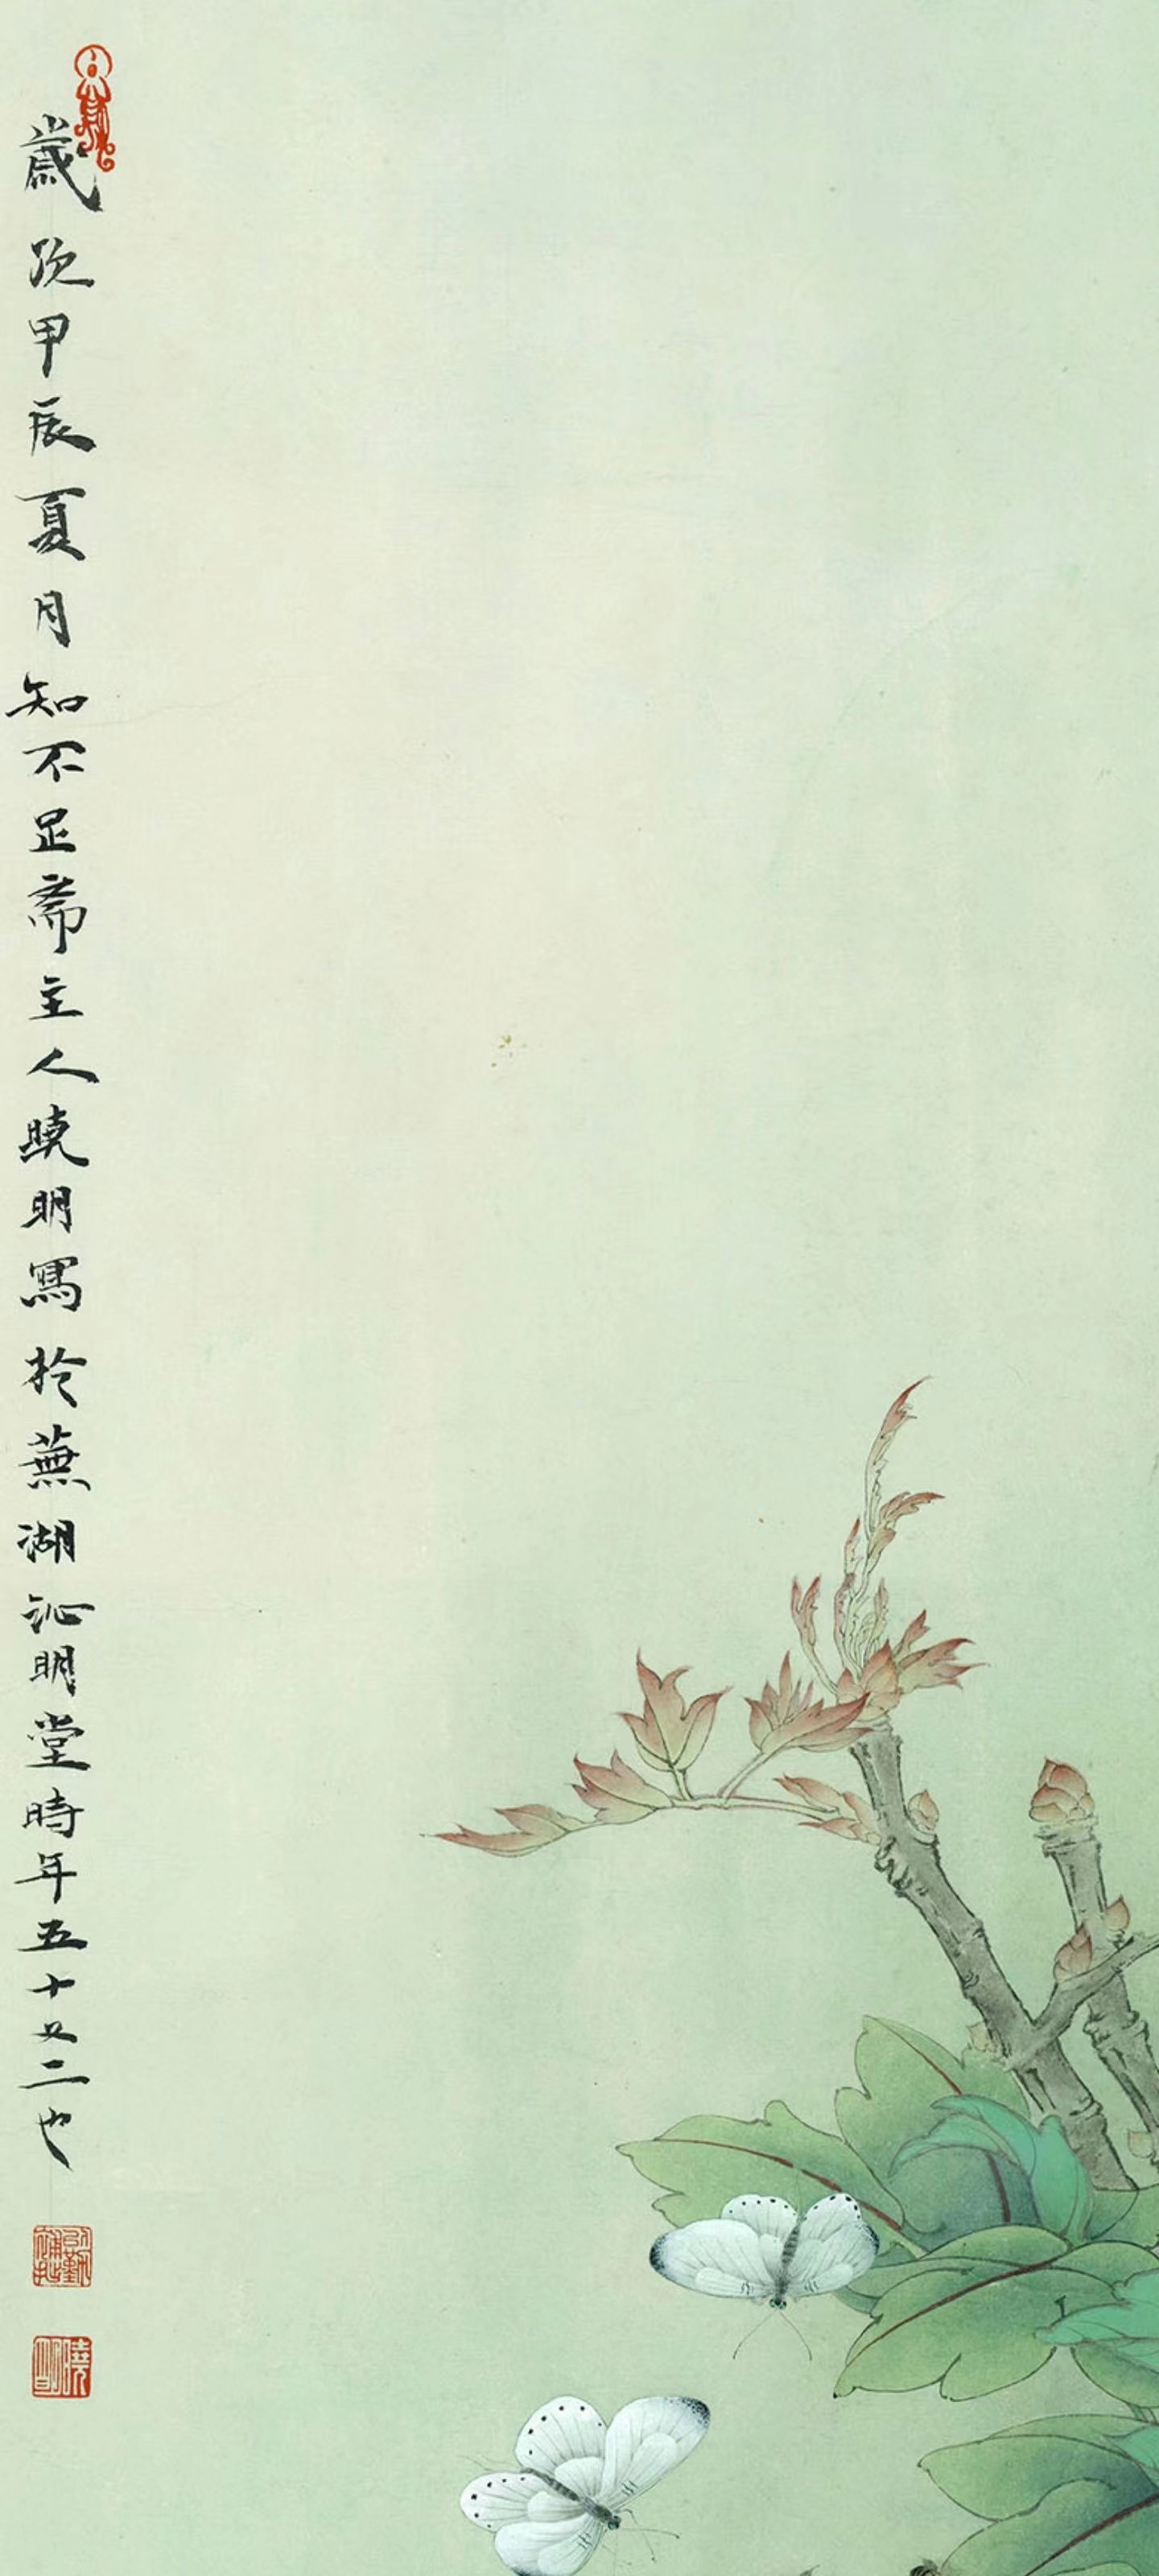 歲次甲辰夏月知不足斋主人曉明寫於蕪湖沁明堂時年五十又二也
曉明